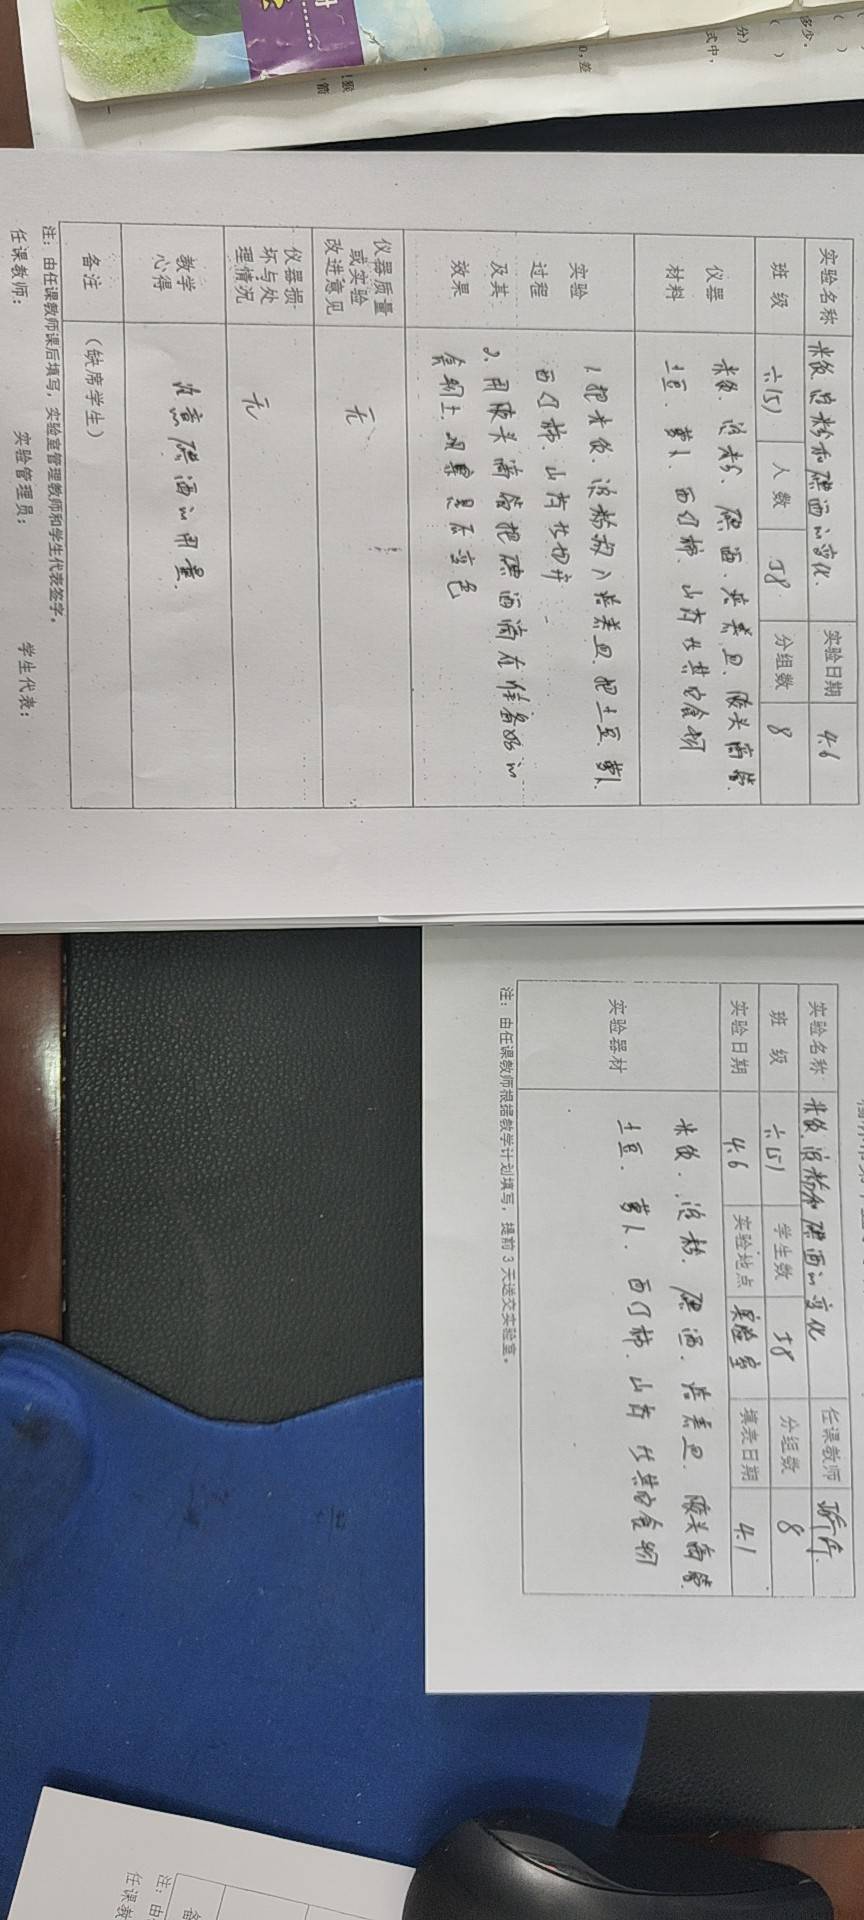 实验名称 米饭、淀粉和碘酒的变化 实验日期 4.6
班级 六(5) 人数 58 分组数 8
仪器材料
米饭、淀粉、碘酒、培养皿、胶头滴管
土豆、萝卜、西红柿、山芋及其它食物
实验过程及其效果
1.把米饭、淀粉放入培养皿、把土豆、萝卜
西红柿、山芋
2、用胶头滴管把碘酒滴在准备好的
食物上,观察是否变色
仪器质量或实验改进意见 无
仪器损坏与处理情况 无
教学心得 注意碘酒的用量
备注 (缺席学生)
注:由任课教师课后填写,实验室管理教师和学生代表签字。
任课教师: 实验管理员: 学生代表:
实验名称 米饭、淀粉和碘酒的变化 任课教师
班级 六(5) 学生数 58 分组数 8
实验日期 4.6 实验地点 实验室 填表日期 4.1
实验器材
米饭、淀粉、碘酒、培养皿、胶头滴管
土豆、萝卜、西红柿、山芋及其它食物
注:由任课教师根据教学计划填写,提前3天送交实验室。